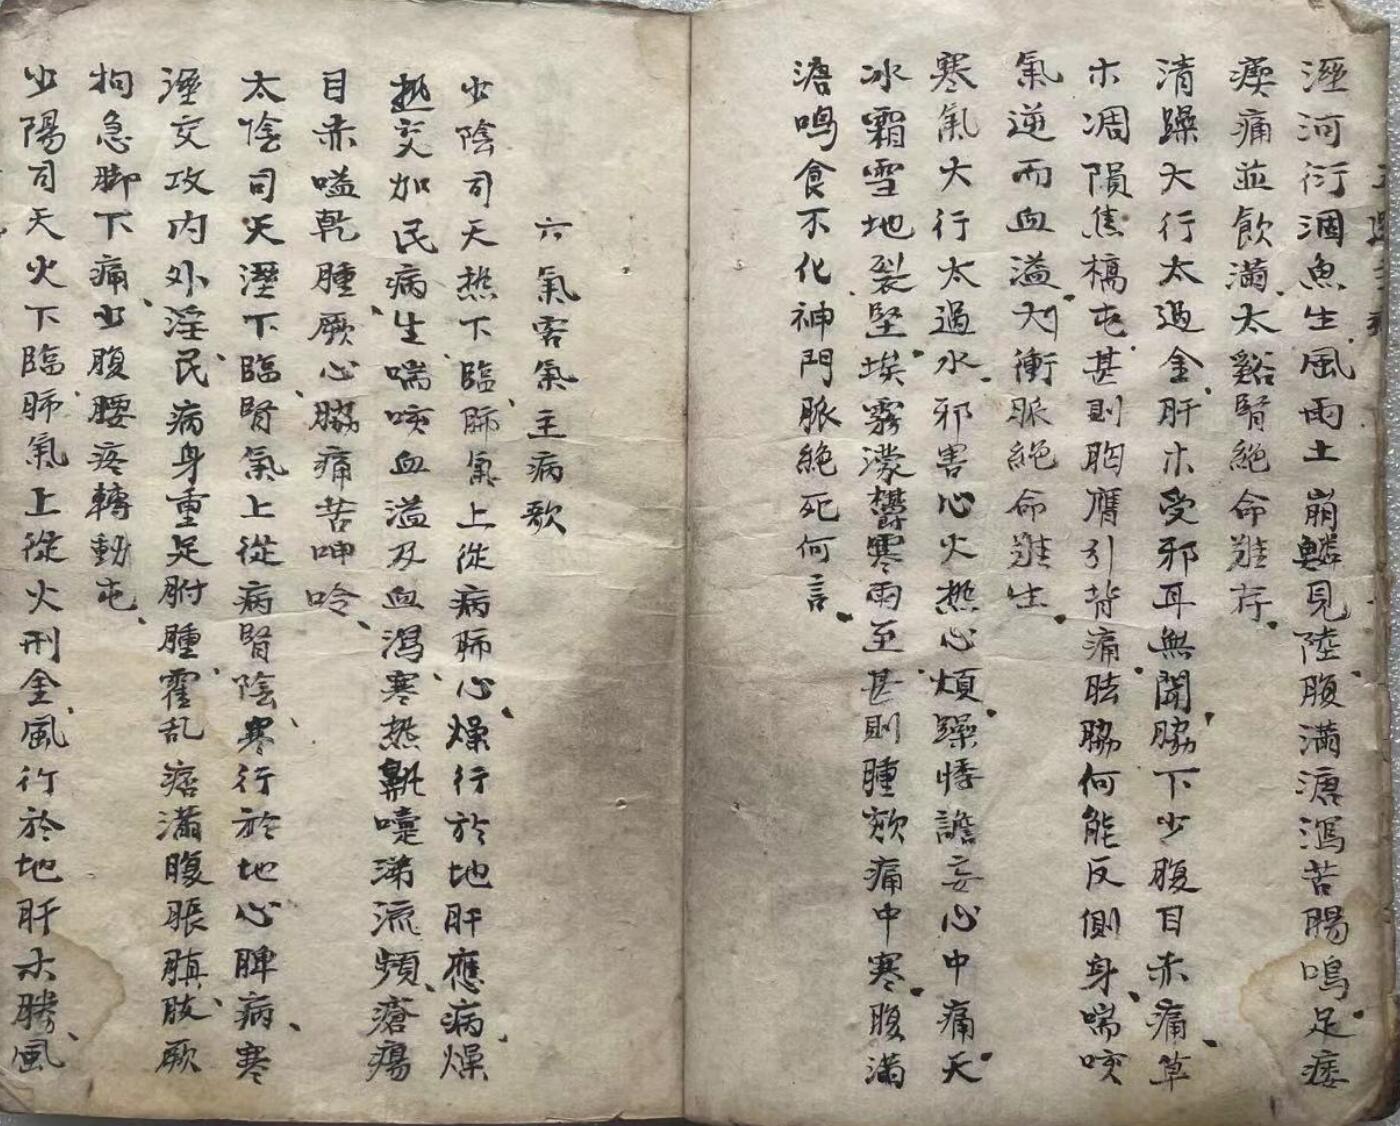 溼河衍涸魚生風雨土崩鱗見陸腹滿溏瀉苦腸鳴足痿
瘈痛並飲滿太谿腎絕命難存
清躁大行太過金肝木受邪耳無聞脇下少腹目赤痛草
木凋隕焦槁屯甚則胸膺引背痛胠脇何能反側身喘咳
氣逆而血溢太衝脈絕命難生
寒氣大行太過水邪害心火熱心煩躁悸譫妄心中痛天
冰霜雪地裂堅埃霧濛欝寒雨至甚則腫欬痛中寒腹滿
溏鳴食不化神門脈絕死何言
六氣客氣主病歌
少陰司天熱下臨肺氣上從病肺心燥行於地肝應病燥
熱交加民病生喘咳血溢及血瀉寒熱鼽嚏涕流頻瘡瘍
目赤嗌乾腫厥心脇痛苦呻吟
太陰司天溼下臨腎氣上從病腎陰寒行於地心脾病寒
溼交攻內外淫民病身重足胕腫霍乱痞滿腹脹䐜肢厥
拘急脚下痛少腹腰疼轉動屯
少陽司天火下臨肺氣上從火刑金風行於地肝木勝風